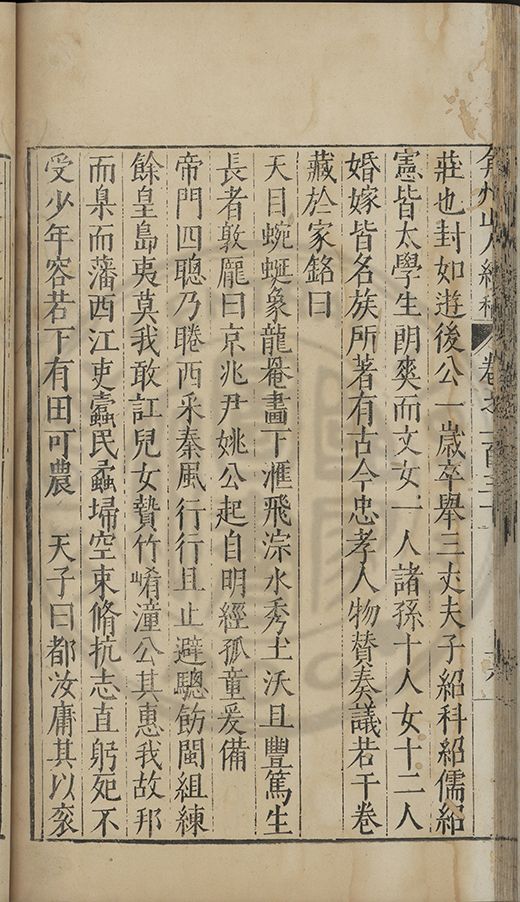 弇州山人續稿 卷之一百三十
莊也封如遊後公一歲卒舉三丈夫子紹科紹儒紹
憲皆太學生朗爽而文女一人諸孫十人女十二人
婚嫁皆名族所著有古今忠孝人物賛奏議若干卷
藏於家銘曰
天目蜿蜒象龍罨畫下滙飛淙水秀土沃且豐篤生
長者敦龐曰京兆尹姚公起自明經孤童爰備
帝門四聰乃睠西采秦風行行且止避驄飭閩組練
餘皇島夷莫我敢訌兒女贄竹崤潼公其惠我故邦
而臬而藩西江吏蠹民蝨埽空束脩抗志直躬不
受少年容若下有田可農 天子曰都汝庸其以衮